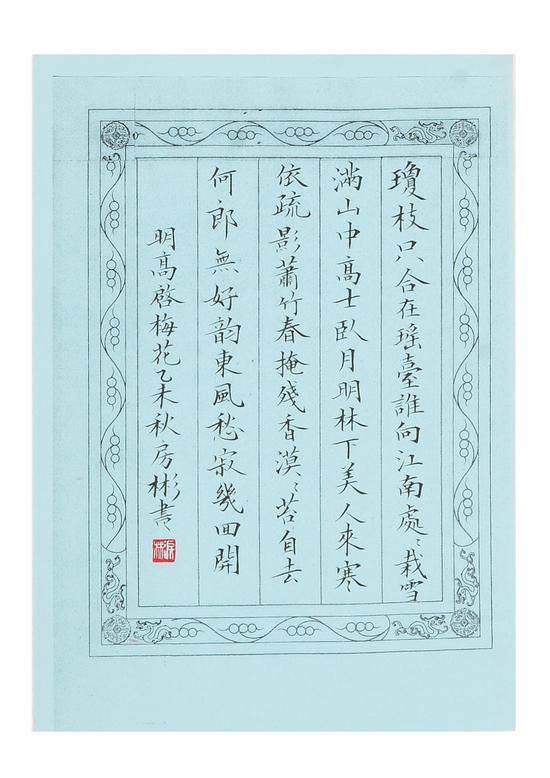 瓊枝只合在瑤臺誰向江南處〻栽雪
滿山中髙士臥月明林下美人來寒
依疏影蕭竹春掩殘香漠〻苔自去
何郎無好韵東風愁寂幾回開
明髙啓梅花乙未秋房彬書